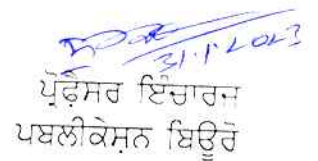 31/1/2023
ਪ੍ਰੋਫ਼ੈਸਰ ਇੰਚਾਰਜ
ਪਬਲੀਕੇਸ਼ਨ ਬਿਊਰੋ